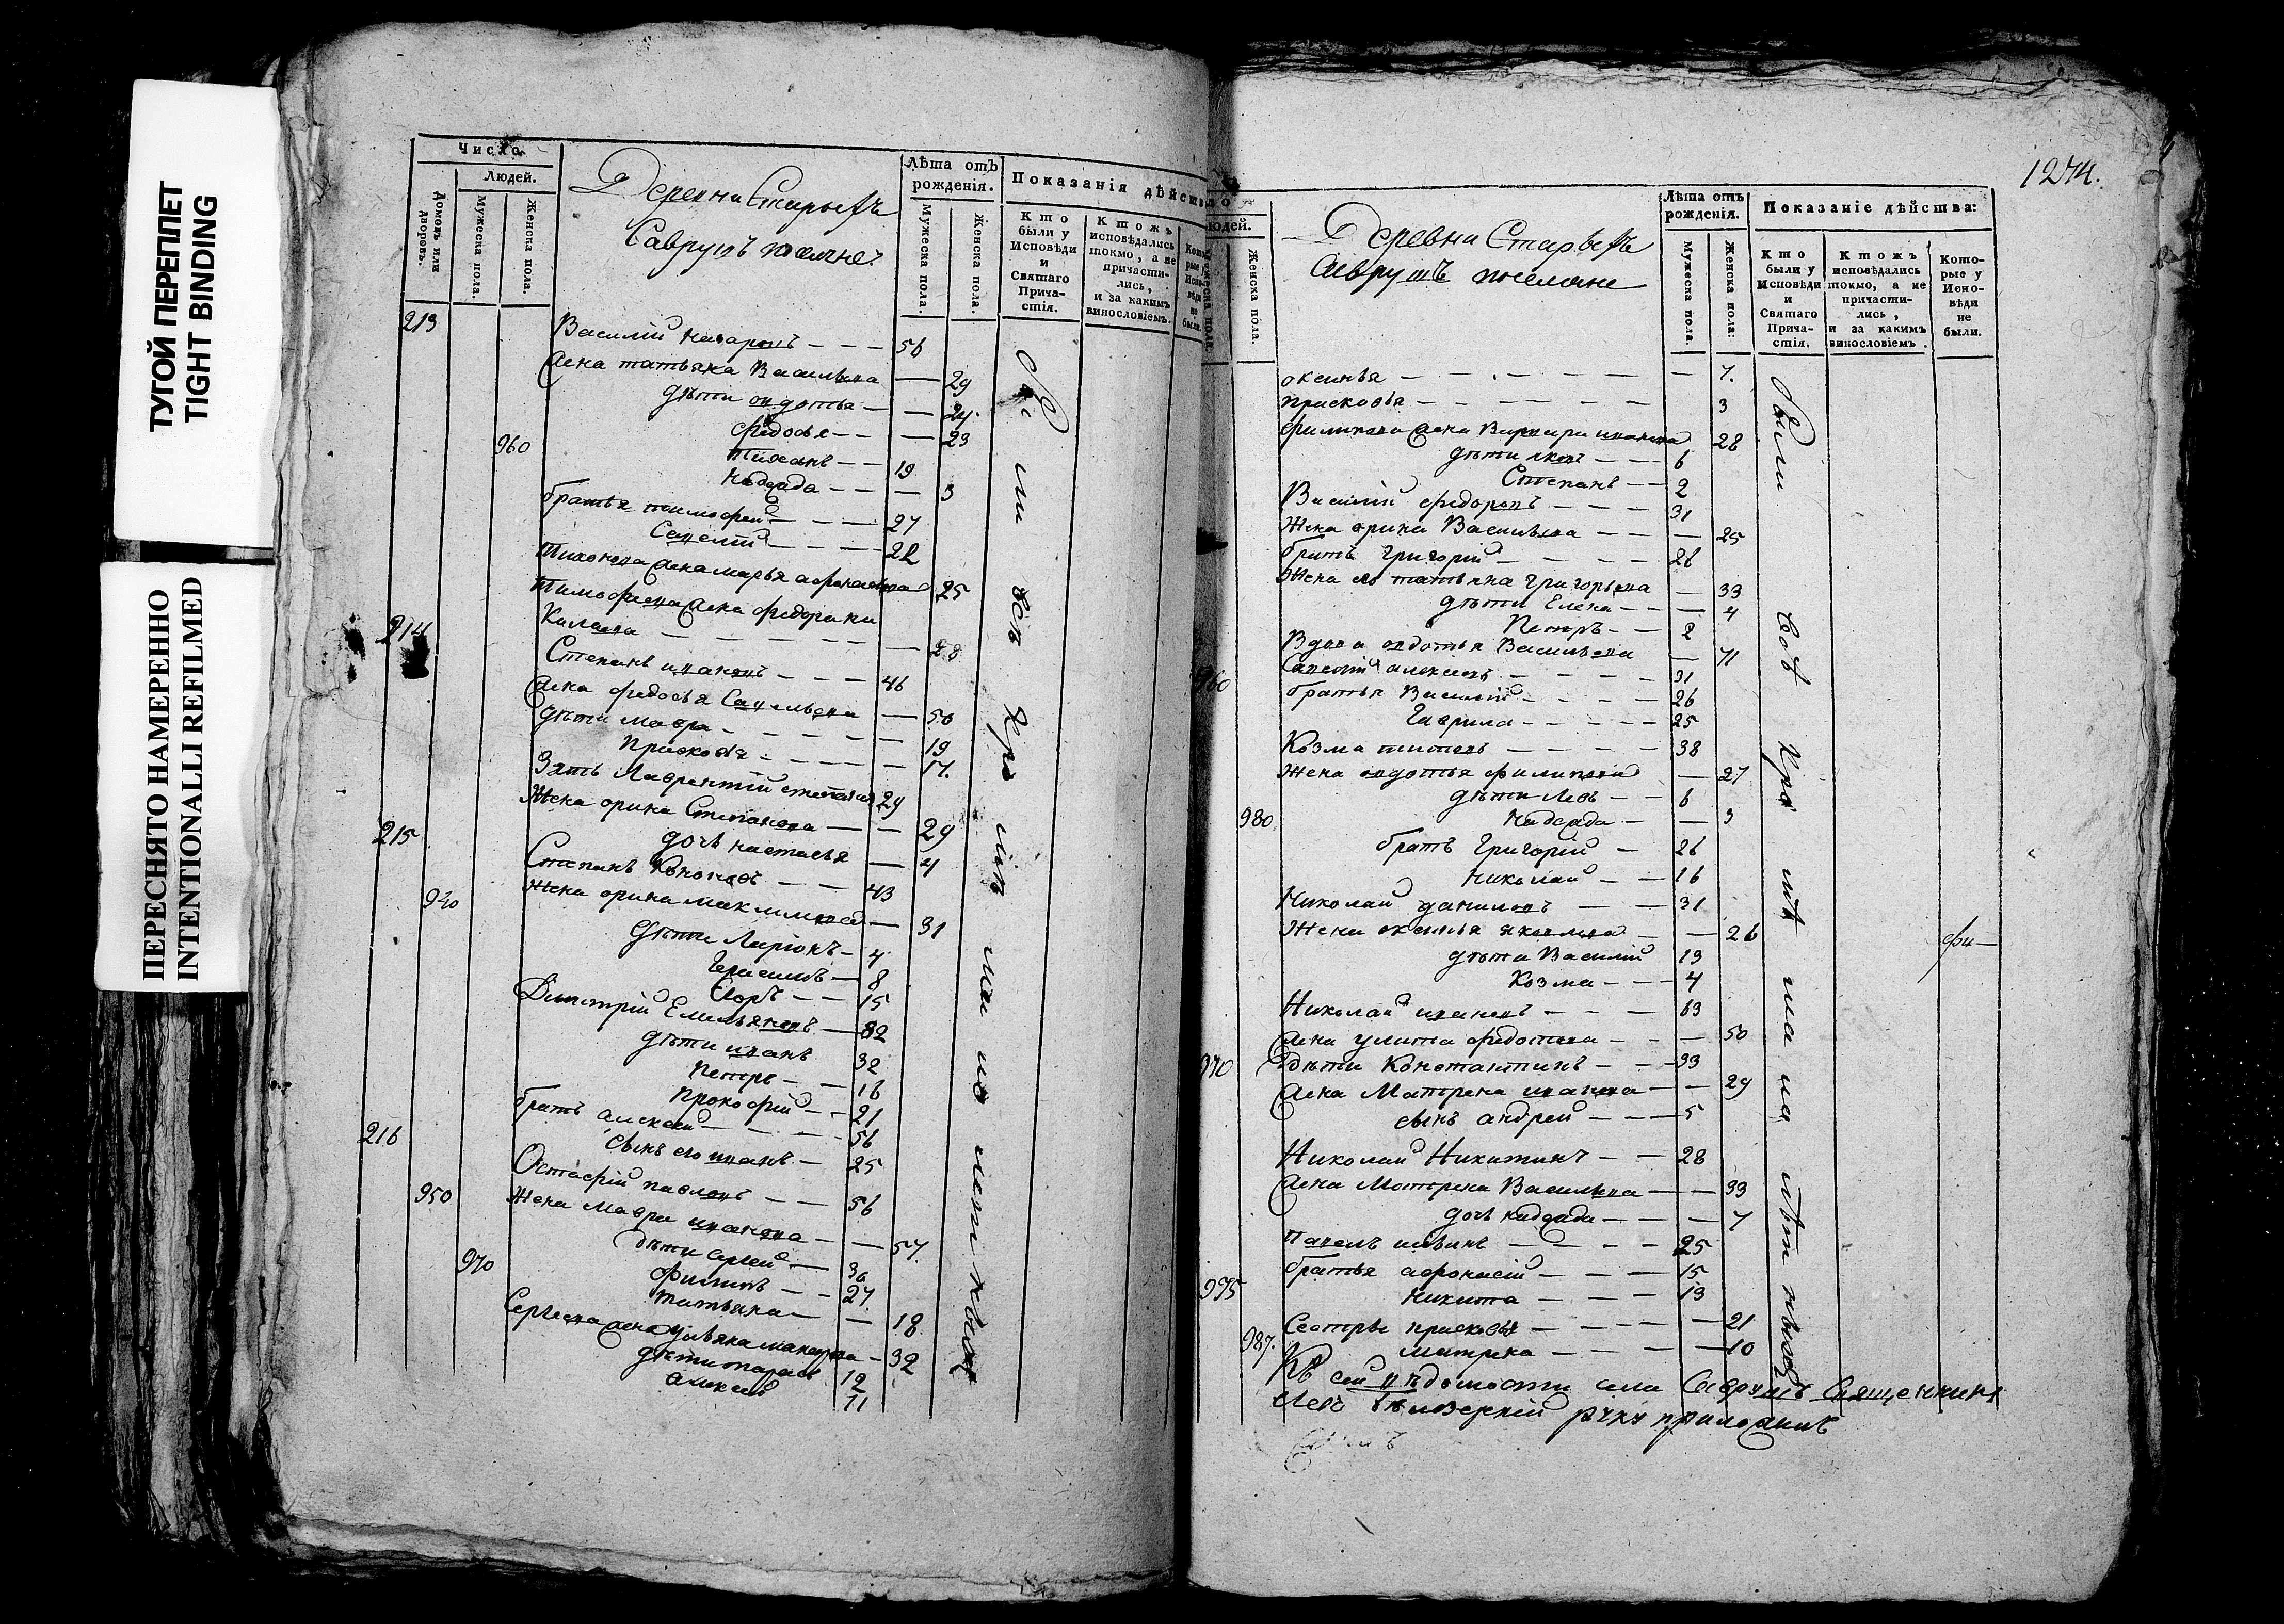 ТУГОЙ ПЕРЕПЛЕТ
TIGHT BINDING
ПЕРЕСНЯТО НАМЕРЕННО
INTENTIONALLI REFILMED
Число
Людей.
Домовъ или дворовъ.
Мужеска пола.
Женска пола.
Деревни Старыхъ
Саврушъ поселяне
Лѣта отъ рожденія.
Мужеска пола.
Женска пола.
Показанія дѣйства
Кто были у Исповѣди и Святаго Причастія.
Ктожъ исповѣдались токмо, а не причастились, и за какимъ винословіемъ.
Которые у Исповѣди не были.
213
Василій Назаровъ — — — 56
Жена татьяна Васильева — 29
дѣти овдотья — — 24
федосья — — — 23
960
Тихонъ — — 19
Надежда — — — 3
братья тимофей — — — 27
Савелій — — — 22
Тихонова жена марья афонасьева 25
Тимофеева жена федора ки
214
Килаева — — — — — 28
Степанъ ивановъ — — — 46
Жена федосья Савельева — 50
дѣти Мавра — — — — — 19
Прасковья — — — — 17.
Зять Лаврентій степановъ 29
Жена орина Степанова — — 29
215
дочь настасья — 4
Степанъ Кононовъ — — 43
940
Жена орина максимова — 31
дѣти Ларіонъ — 4
Герасимъ — 8
Егоръ — — 15
Димитрій Емельяновъ — 82
дѣти иванъ 32
Петръ — — 16
Прокофій — — 21
братъ алексей — — — — 56
216
сынъ его иванъ — 25
Остафій павловъ — — 56
950
Жена Мавра иванова — — 57.
дѣти сергей — 36
970
филипъ — — 27.
татьяна — — 18
Сергеева жена ульяна макарова — 32
дѣти тарасъ 12
алексей 11
Были всѣ
1274.
Людей.
Женска пола.
Деревни Старыхъ
Саврушъ поселяне
Лѣта отъ рожденія.
Мужеска пола.
Женска пола:
Показаніе дѣйства:
Кто были у Исповѣди и Святаго Причастія.
Ктожъ исповѣдались токмо, а не причастились, и за какимъ винословіемъ.
Которые у Исповѣди не были.
оксинья — — — — — — — 7.
прасковья — — — — — — 3
филипова жена Варвара иванова 28
дѣти яковъ — — — 6
Степанъ — — 2
Василій федоровъ — — — 31
Жена орина Васильева — — — 25
братъ Григорій — — — — 26
Жена его татьяна григорьева — 33
дѣти Елена — — — 4
Петръ — — 2
Вдова овдотья Васильева — 71
960
Савелій алексеевъ — — — — 31
братья Василій — — — — 26
Гаврила — — — — 25
Козма титовъ — — — — 38
Жена овдотья филипова — 27
дѣти Левъ — — 6
980
Надежда — — 3
братъ Григорій — 26
Николай — — 16
Николай даниловъ — — 31
Жена оксинья яковлева — — 26
дѣти Василій 13
Козма — — — 4
Николай ивановъ — — — 63
Жена улита федотова — — — 50
970
дѣти Констатинъ — — 33
Жена Матрена иванова — — 29
сынъ андрей — — — 5
Николай Никитинъ — — 28
Жена Матрена Васильева — — 33
дочь надежда — — — 7
Павелъ — — — — 25
братья афонасій — — — 15
975
никита — — — 13
Сестры прасковья — — — — 21
987.
матрена — — — — 10
Къ сей вѣдомости села Саврушъ Священникъ
Левъ руку приложилъ